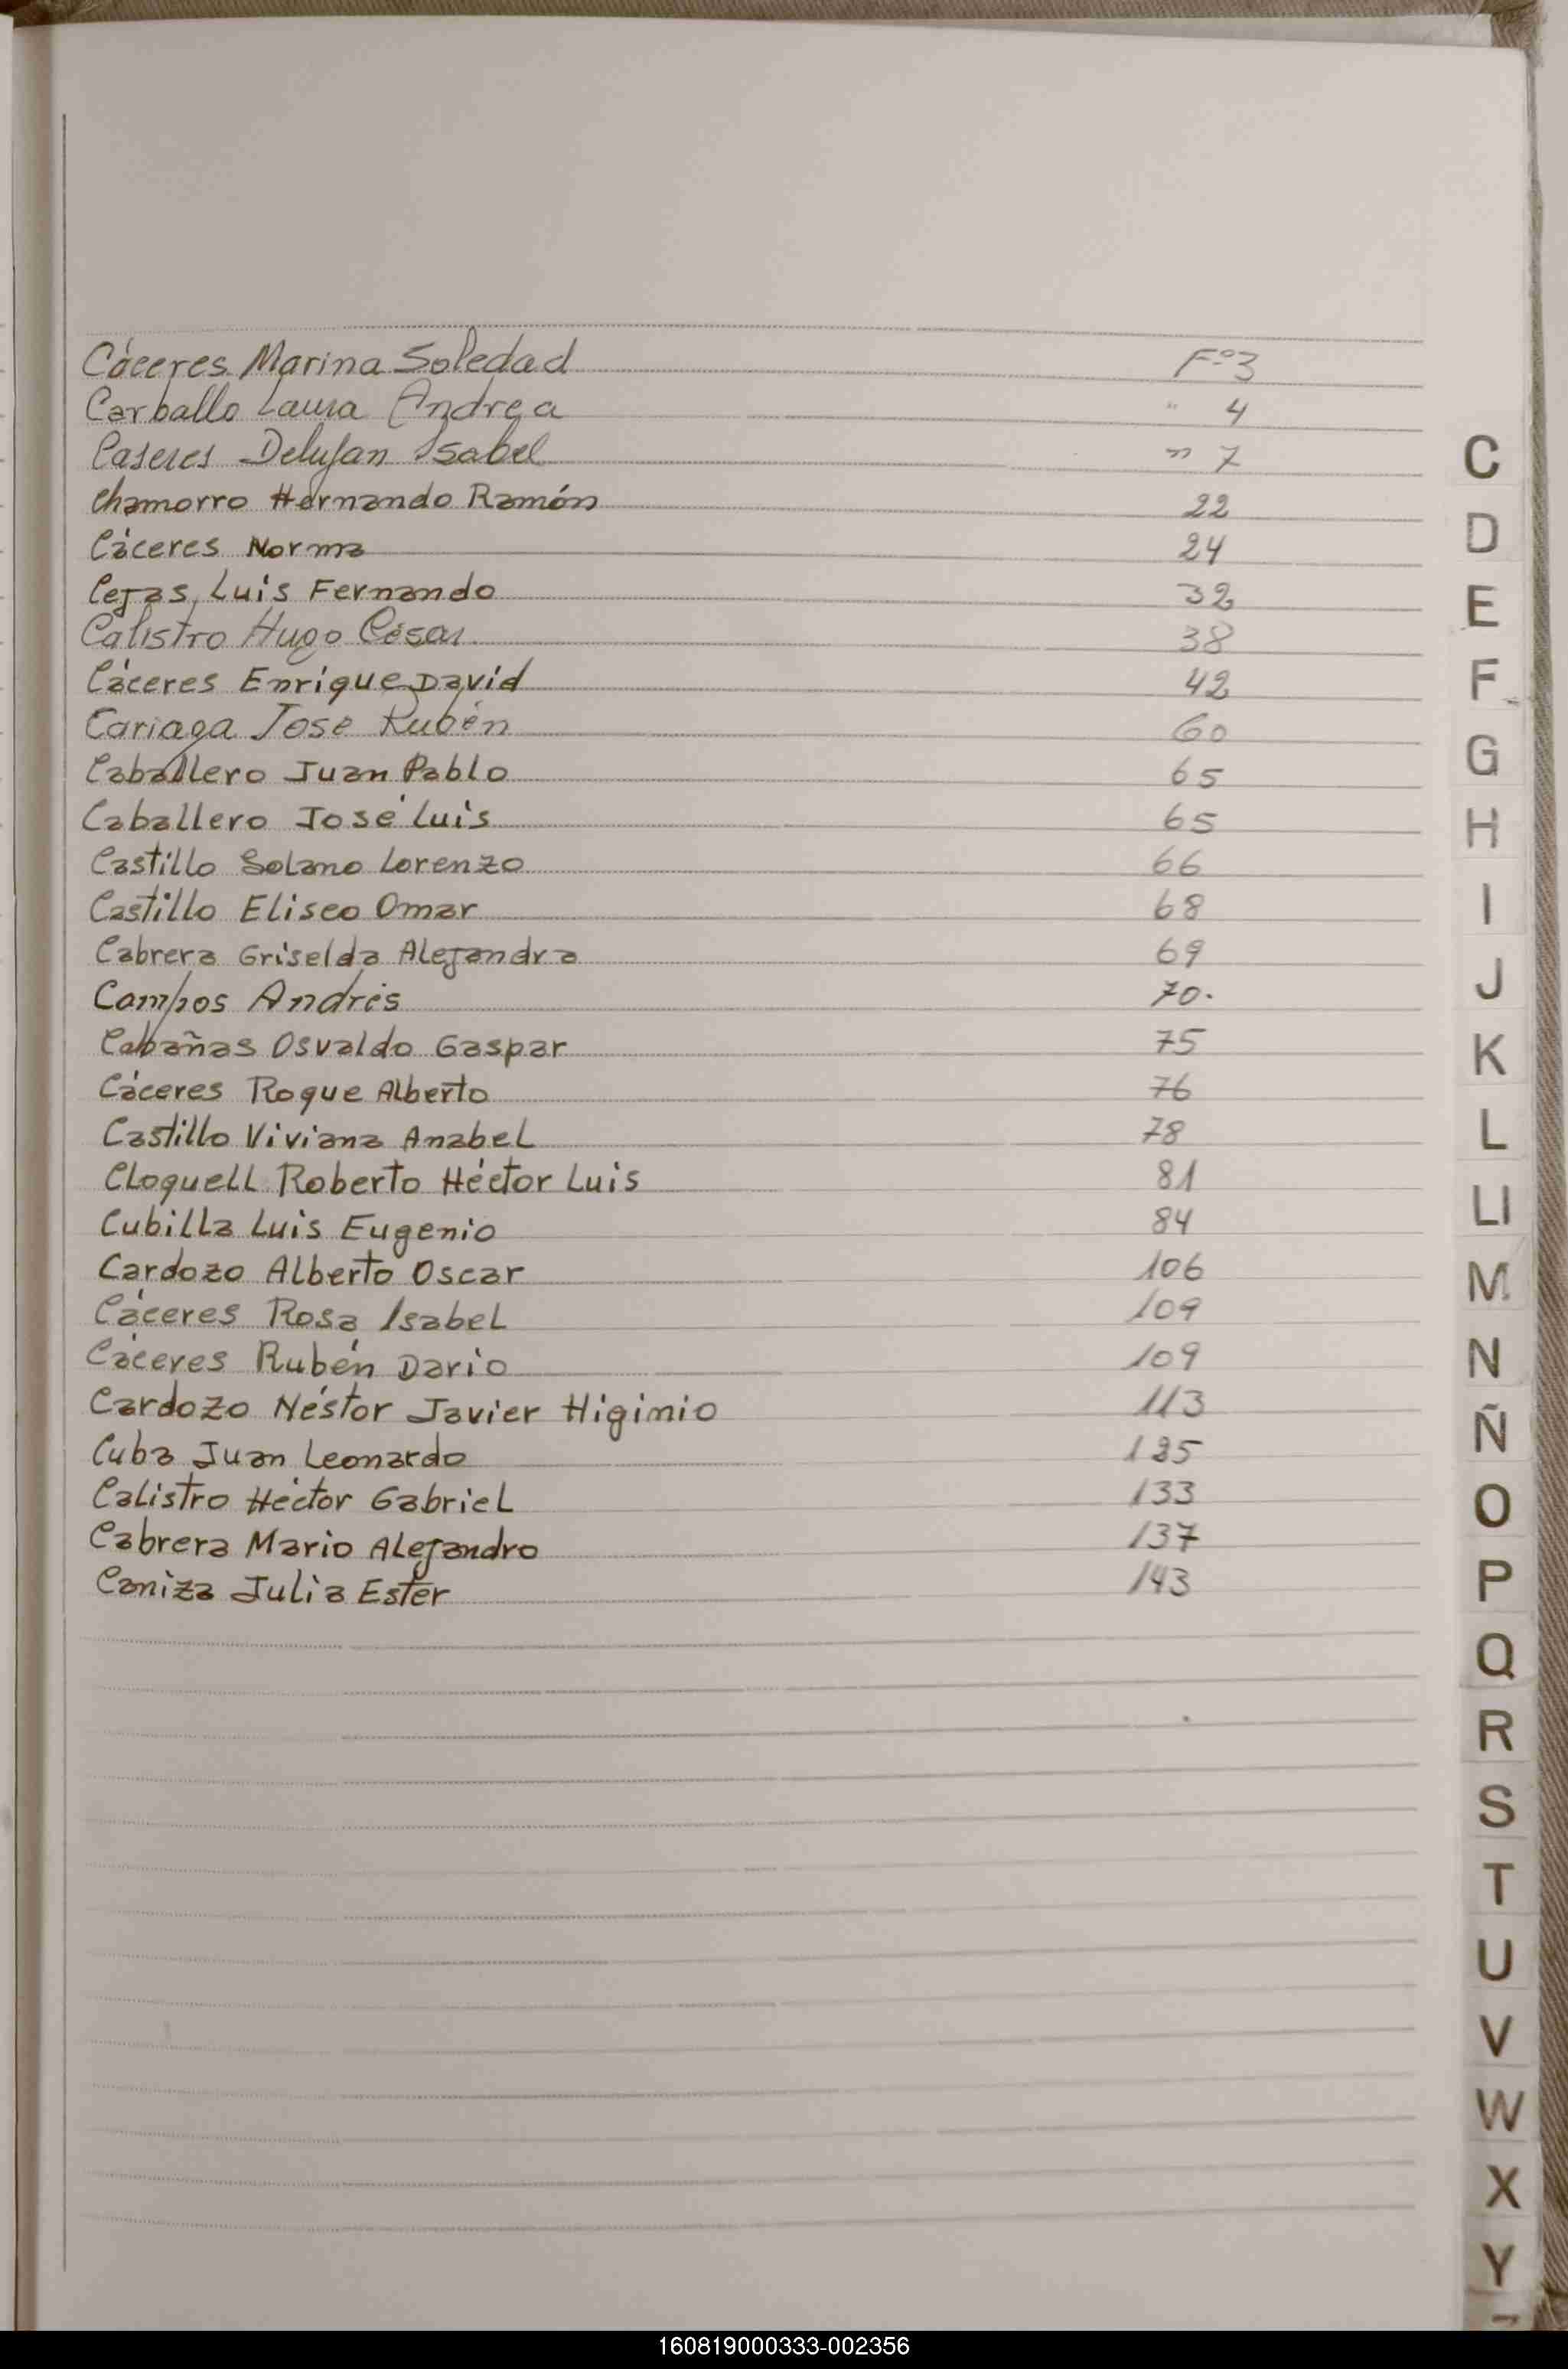 Cáceres Marina Soledad Fº 3
Carballo Laura Andrea " 4
Caseres Delujan Isabel " 7
Chamorro Hernando Ramón 22
Cáceres Norma 24
Cejas, Luis Fernando 32
Calistro Hugo César 38
Cáceres Enrique David 42
Cariaga José Rubén 60
Caballero Juan Pablo 65
Caballero José Luis 65
Castillo Solano Lorenzo 66
Castillo Eliseo Omar 68
Cabrera Griselda Alejandra 69
Campos Andrés 70.
Cabañas Osvaldo Gaspar 75
Cáceres Roque Alberto 76
Castillo Viviana Anabel 78
Cloquell Roberto Héctor Luis 81
Cubilla Luis Eugenio 84
Cardozo Alberto Oscar 106
Cáceres Rosa Isabel 109
Cáceres Rubén Dario 109
Cardozo Néstor Javier Higinio 113
Cuba Juan Leonardo
Calistro Héctor Gabriel 133
Cabrera Mario Alejandro 137
Caniza Julia Ester 143
C
D
E
F
G
H
I
J
K
L
Ll
M
N
Ñ
O
P
Q
R
S
T
U
V
W
X
Y
160819000333-002356